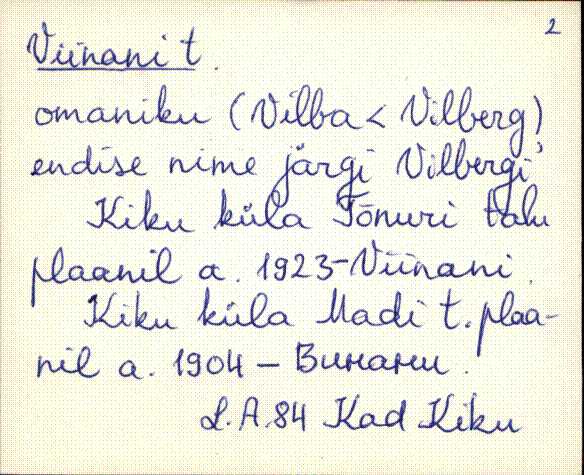 2
Viinani t.
omaniku (Vilba < Vilberg)
endise nime järgi Vilbergi
Kiku küla Tõnuri talu
plaanil a. 1923 - Viinani.
Kiku küla Madi t. plaa-
nil a. 1904 - Винани.
L.A.84 Kad Kiku